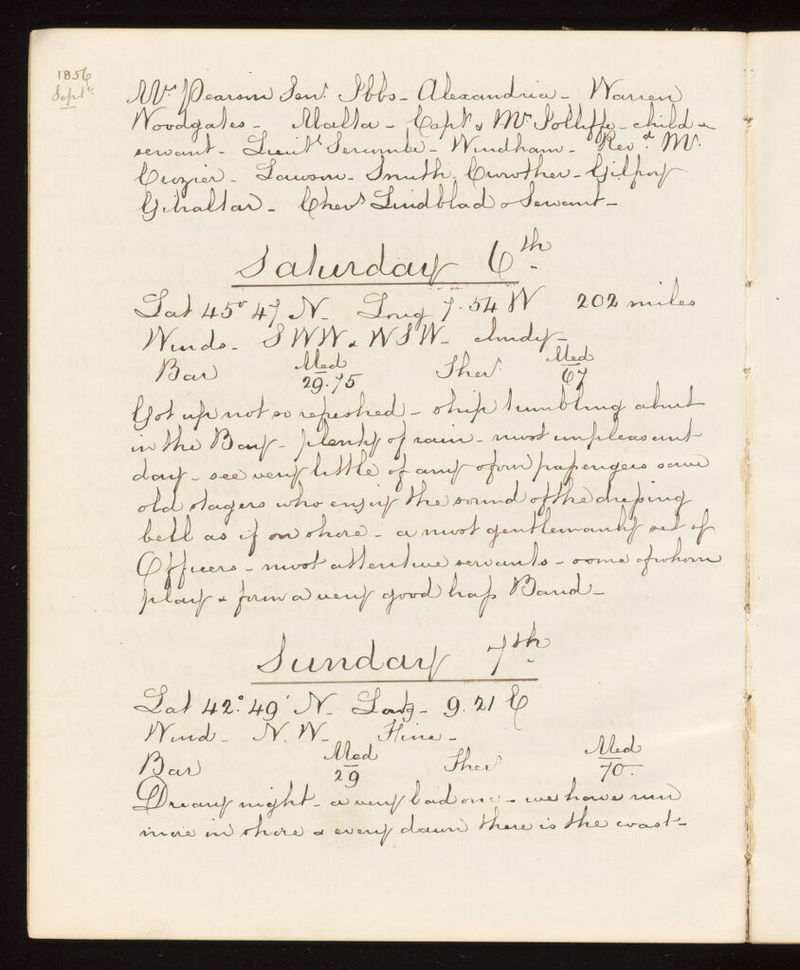 1856
Sept.
Mr. Pearson Senr. Ibbs - Alexandria - Warren
Woodgates - Malta - Capt. & Mrs Jolliffe - child &
servant - Lieuts Sercombe - Windham - Revd. Mr.
Crozier - Lawson - Smith. Crowther - Gilpoy
Gibraltar - Chevr Lindblad & Servant -
Saturday 6th
Lat 45° 47 N - Long 7.54 W 202 miles
Winds - S WW & W S W - cloudy -
Bar Med 29.75 Ther Med 67
Got up not so refreshed - ship tumbling about
in the Bay - plenty of rain - most unpleasant
day - see very little of any of our passengers save
old stagers who enjoy the sound of the dressing
bell as if on shore - a most gentlemanly set of
Officers - most attentive servants - some of whom
play & form a very good brass Band -
Sunday 7th
Lat 42° 49' N - Long - 9.21 E
Wind - N. W - Fine -
Bar Med 29 Ther Med 70
Dreary night - a very bad one - we have run
more in shore & every dawn there is the coast -